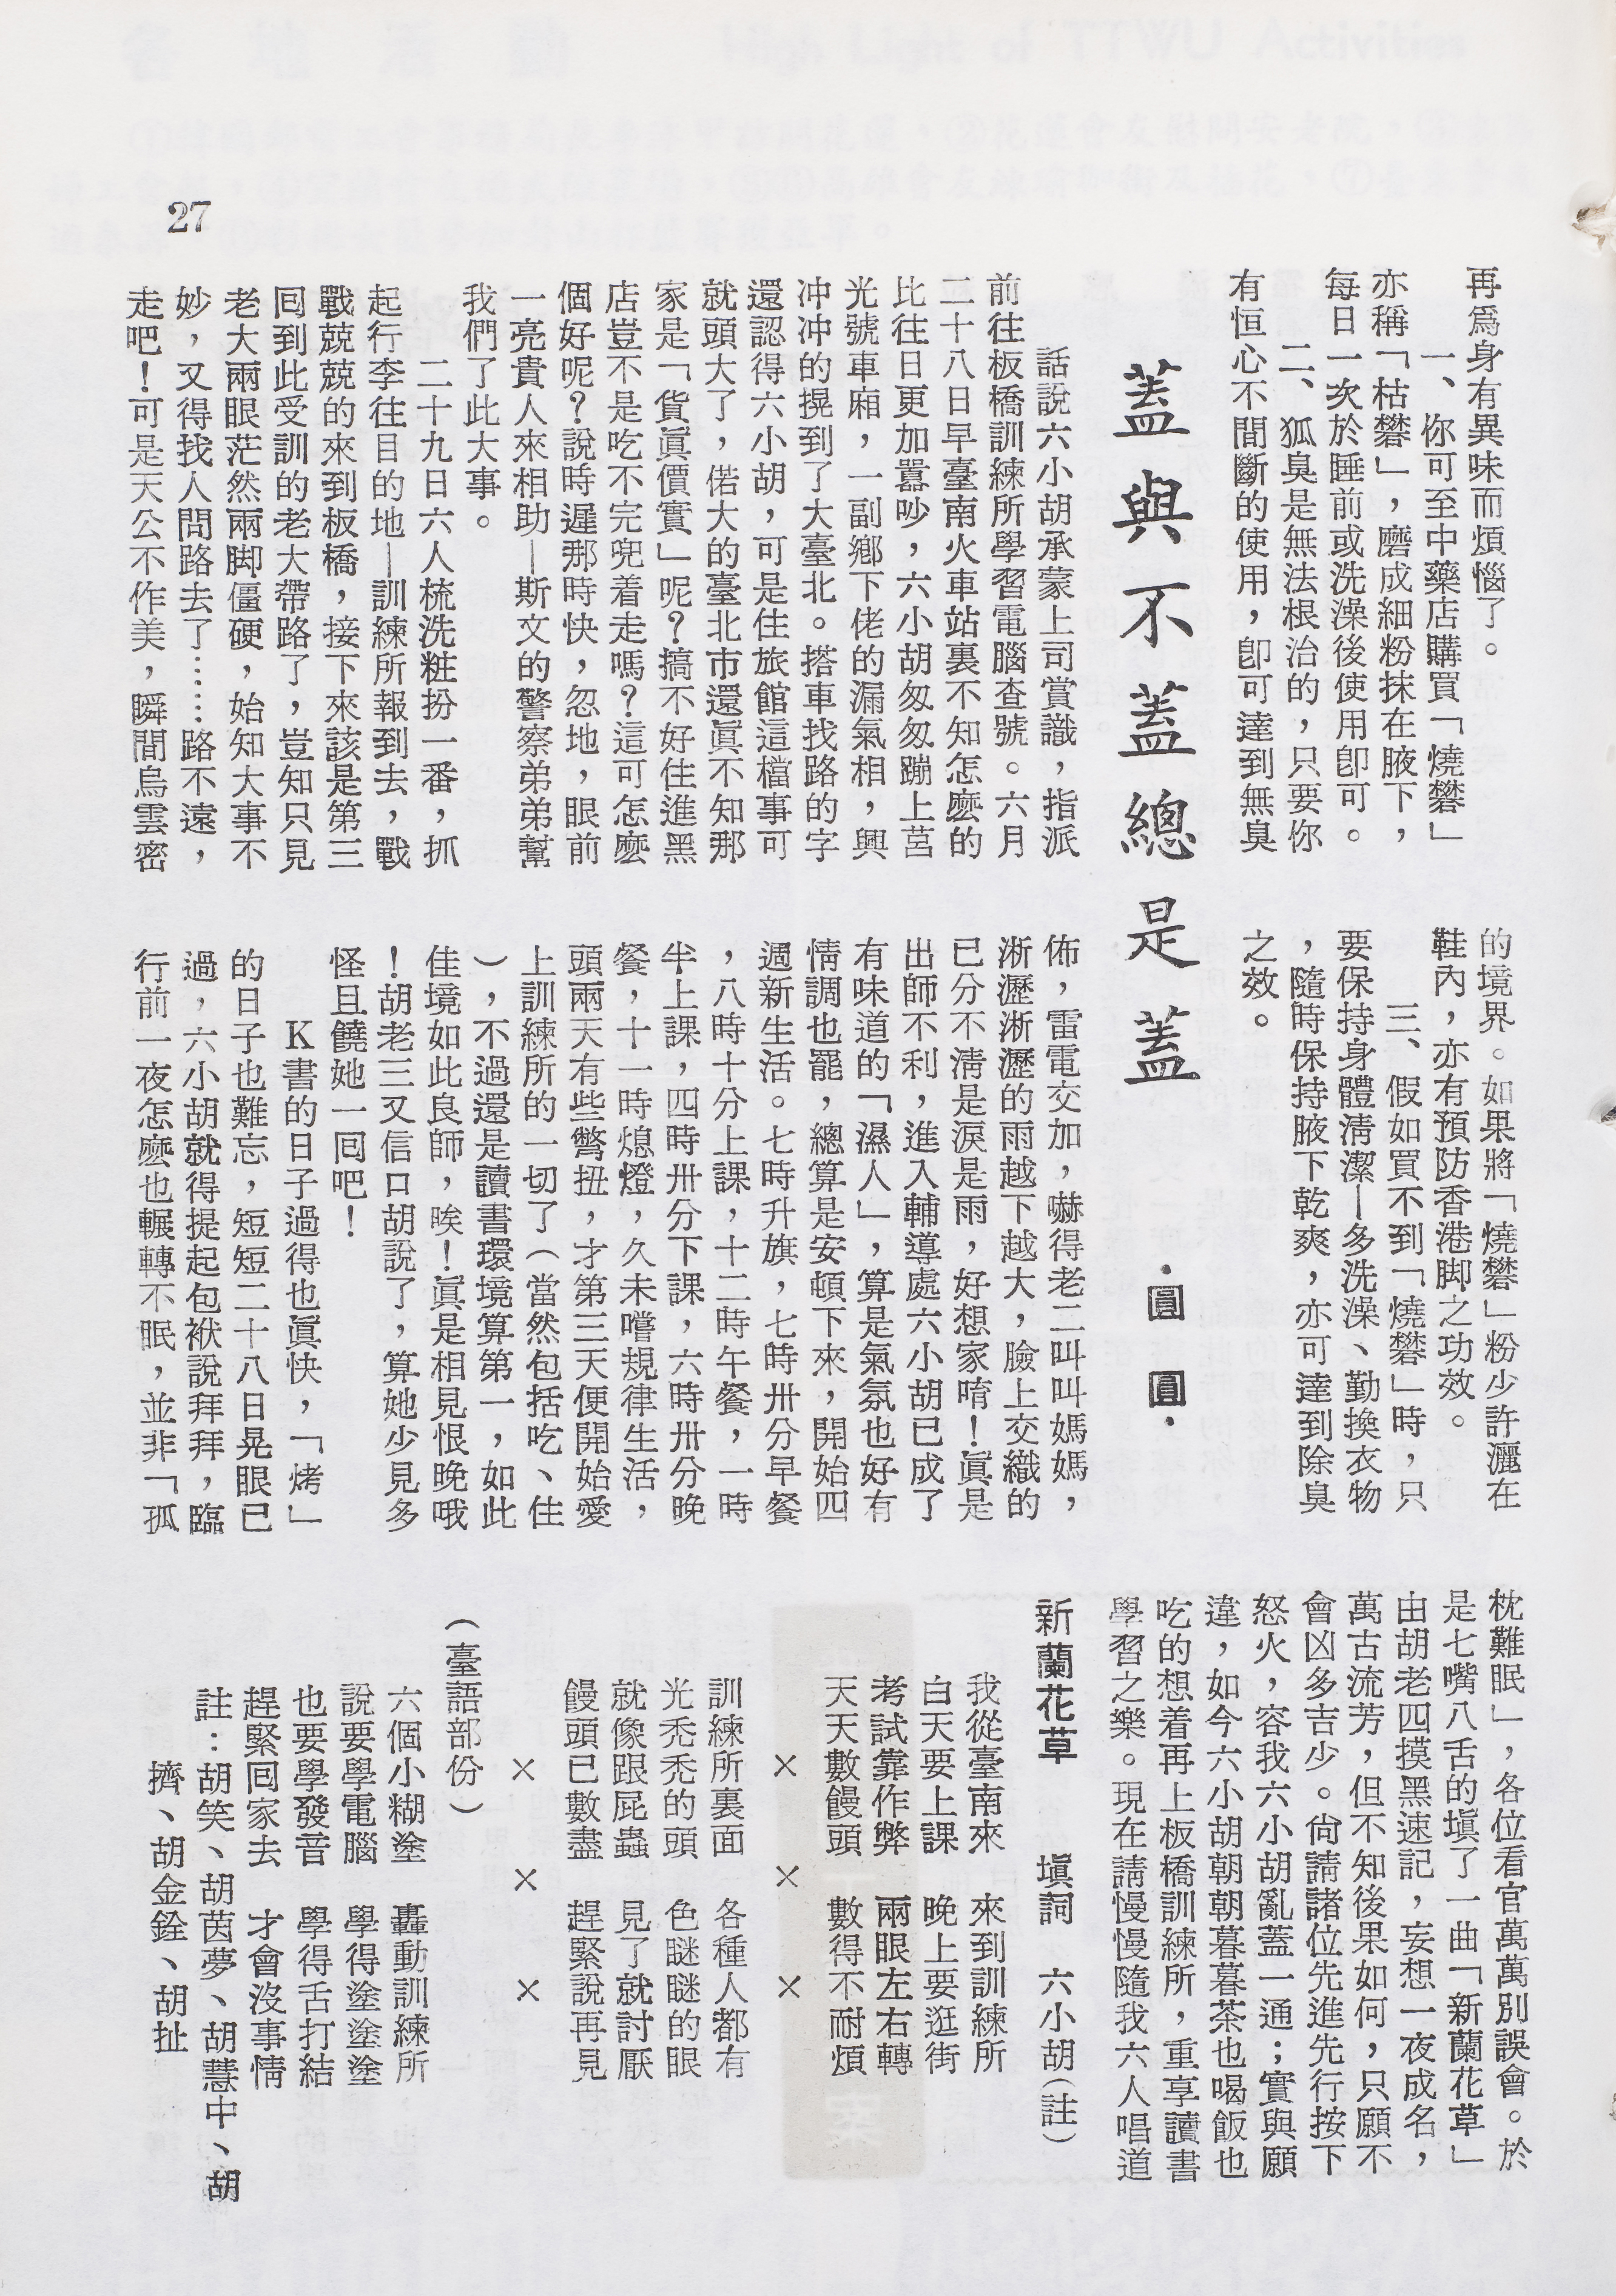 27
再爲身有異味而煩惱了。
一、你可至中藥店購買「燒礬」
亦稱「枯礬」，磨成細粉抹在腋下，
每日一次於睡前或洗澡後使用即可。
二、狐臭是無法根治的，只要你
有恒心不間斷的使用，即可達到無臭
的境界。如果將「燒礬」粉少許灑在
鞋內，亦有預防香港脚之功效。
三、假如買不到「燒礬」時，只
要保持身體清潔—多洗澡、勤換衣物
，隨時保持腋下乾爽，亦可達到除臭
之效。
蓋與不蓋總是蓋
·圓圓·
話說六小胡承蒙上司賞識，指派
前往板橋訓練所學習電腦查號。六月
二十八日早臺南火車站裏不知怎麼的
比往日更加囂吵，六小胡匆匆蹦上莒
光號車廂，一副鄉下佬的漏氣相，興
冲冲的提到了大臺北。搭車找路的字
還認得六小胡，可是住旅館這檔事可
就頭大了，偌大的臺北市還眞不知那
家是「貨眞價實」呢？搞不好住進黑
店豈不是吃不完兜着走嗎？這可怎麼
個好呢？說時遲那時快，忽地，眼前
一亮貴人來相助—斯文的警察弟弟幫
我們了此大事。
二十九日六人梳洗粧扮一番，抓
起行李往目的地—訓練所報到去，戰
戰兢兢的來到板橋，接下來該是第三
囘到此受訓的老大帶路了，豈知只見
老大兩眼茫然兩脚僵硬，始知大事不
妙，又得找人問路去了……路不遠，
走吧！可是天公不作美，瞬間烏雲密
佈，雷電交加，嚇得老二叫叫媽媽，
淅瀝淅瀝的雨越下越大，臉上交織的
已分不淸是淚是雨，好想家唷！眞是
出師不利，進入輔導處六小胡已成了
有味道的「濕人」，算是氣氛也好有
情調也罷，總算是安頓下來，開始四
週新生活。七時升旗，七時卅分早餐
，八時十分上課，十二時午餐，一時
半上課，四時卅分下課，六時卅分晚
餐，十一時熄燈，久未嚐規律生活，
頭兩天有些彆扭，才第三天便開始愛
上訓練所的一切了（當然包括吃、住
），不過還是讀書環境算第一，如此
佳境如此良師，唉！眞是相見恨晚哦
！胡老三又信口胡說了，算她少見多
怪且饒她一囘吧！
K書的日子過得也眞快，「烤」
的日子也難忘，短短二十八日晃眼已
過，六小胡就得提起包袱說拜拜，臨
行前一夜怎麼也輾轉不眠，並非「孤
枕難眠」，各位看官萬萬別誤會。於
是七嘴八舌的塡了一曲「新蘭花草」
由胡老四摸黑速記，妄想一夜成名，
萬古流芳，但不知後果如何，只願不
會凶多吉少。尙請諸位先進先行按下
怒火，容我六小胡亂蓋一通；實與願
違，如今六小胡朝朝暮暮茶也喝飯也
吃的想着再上板橋訓練所，重享讀書
學習之樂。現在請慢慢隨我六人唱道
新蘭花草　塡詞　六小胡（註）
我從臺南來　來到訓練所
白天要上課　晚上要逛街
考試靠作弊　兩眼左右轉
天天數饅頭　數得不耐煩
×　×　×
訓練所裏面　各種人都有
光禿禿的頭　色瞇瞇的眼
就像跟屁蟲　見了就討厭
饅頭已數盡　趕緊說再見
×　×　×
（臺語部份）
六個小糊塗　轟動訓練所
說要學電腦　學得塗塗塗
也要學發音　學得舌打結
趕緊回家去　才會沒事情
註：胡笑、胡茵夢、胡慧中、胡
擠、胡金銓、胡扯